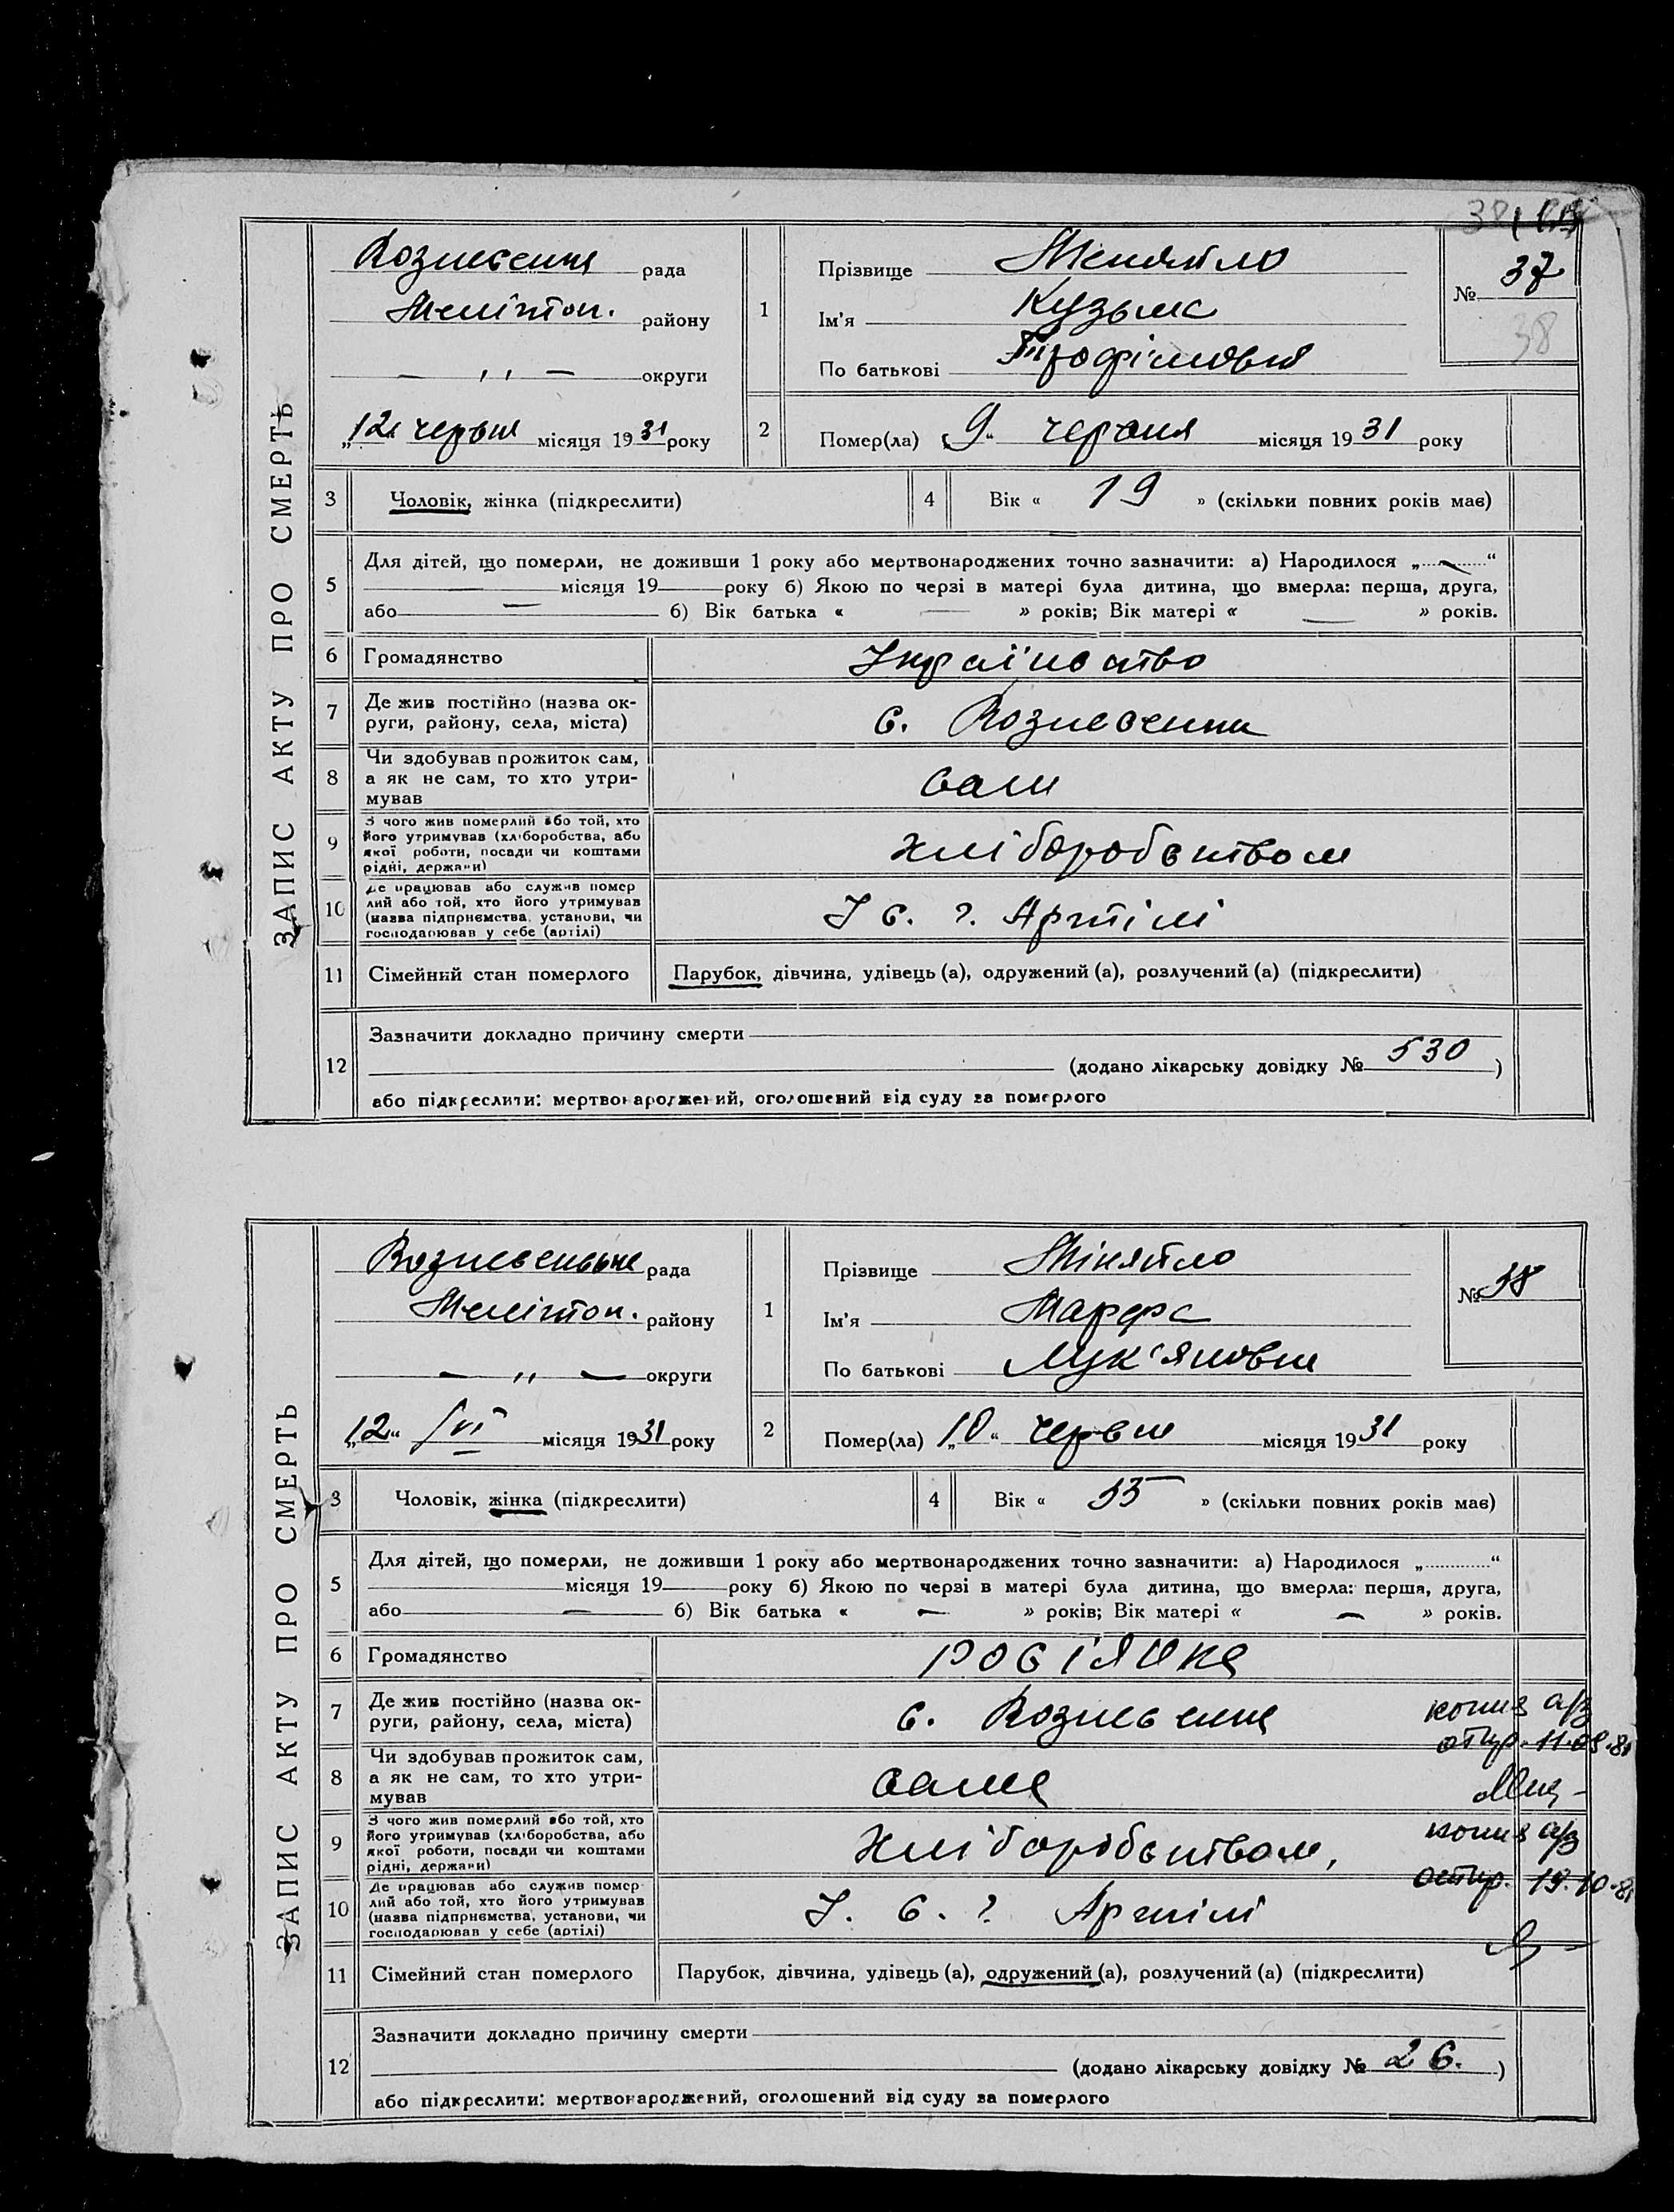 ЗАПИС АКТУ ПРО СМЕРТЬ
Вознесення рада
Мелітоп. району
— " — округи
„12" червня місяця 1931 року
1
Прізвище Менятло
Ім'я Кузьма
По батькові Трофімовия
№ 37
38
2
Помер(ла) „9" червня місяця 1931 року
3
Чоловік, жінка (підкреслити)
4
Вік « 19 » (скільки повних років має)
5
Для дітей, що померли, не доживши 1 року або мертвонароджених точно зазначити: а) Народилося „ “
місяця 19 року б) Якою по черзі в матері була дитина, що вмерла: перша, друга,
або б) Вік батька « — » років; Вік матері « — » років.
6
Громадянство
7
Де жив постійно (назва ок-
руги, району, села, міста)
с. Вознесення
8
Чи здобував прожиток сам,
а як не сам, то хто утри-
мував
сам
9
З чого жив померлий або той, хто
його утримував (хліборобства, або
якої роботи, посади чи коштами
рідні, держави)
хліборобством
10
Де працював або служив помер
лий або той, хто його утримував
(назва підприємства, установи, чи
господарював у себе (артілі)
У с. г. Артілі
11
Сімейний стан померлого
Парубок, дівчина, удівець (а), одружений (а), розлучений (а) (підкреслити)
12
Зазначити докладно причину смерти
(додано лікарську довідку № 530 )
або підкреслити: мертвонароджений, оголошений від суду за померлого
ЗАПИС АКТУ ПРО СМЕРТЬ
Вознесеньня рада
Меліտոп. району
— " — округи
„12" VI місяця 1931 року
1
Прізвище Мінятло
Ім'я Марфа
По батькові Лук'яновна
№ 38
2
Помер(ла) „10" червня місяця 1931 року
3
Чоловік, жінка (підкреслити)
4
Вік « 55 » (скільки повних років має)
5
Для дітей, що померли, не доживши 1 року або мертвонароджених точно зазначити: а) Народилося „ “
місяця 19 року б) Якою по черзі в матері була дитина, що вмерла: перша, друга,
або — б) Вік батька « — » років; Вік матері « — » років.
6
Громадянство
росіянка
7
Де жив постійно (назва ок-
руги, району, села, міста)
с. Вознесення
копия а/з
отпр. 11.09.81
8
Чи здобував прожиток сам,
а як не сам, то хто утри-
мував
сама
9
З чого жив померлий або той, хто
його утримував (хліборобства, або
якої роботи, посади чи коштами
рідні, держави)
хліборобством,
копия а/з
отпр. 19.10.81
10
Де працював або служив помер
лий або той, хто його утримував
(назва підприємства, установи, чи
господарював у себе (артілі)
У. с. г. Артілі
11
Сімейний стан померлого
Парубок, дівчина, удівець (а), одружений (а), розлучений (а) (підкреслити)
12
Зазначити докладно причину смерти
(додано лікарську довідку № 26. )
або підкреслити: мертвонароджений, оголошений від суду за померлого